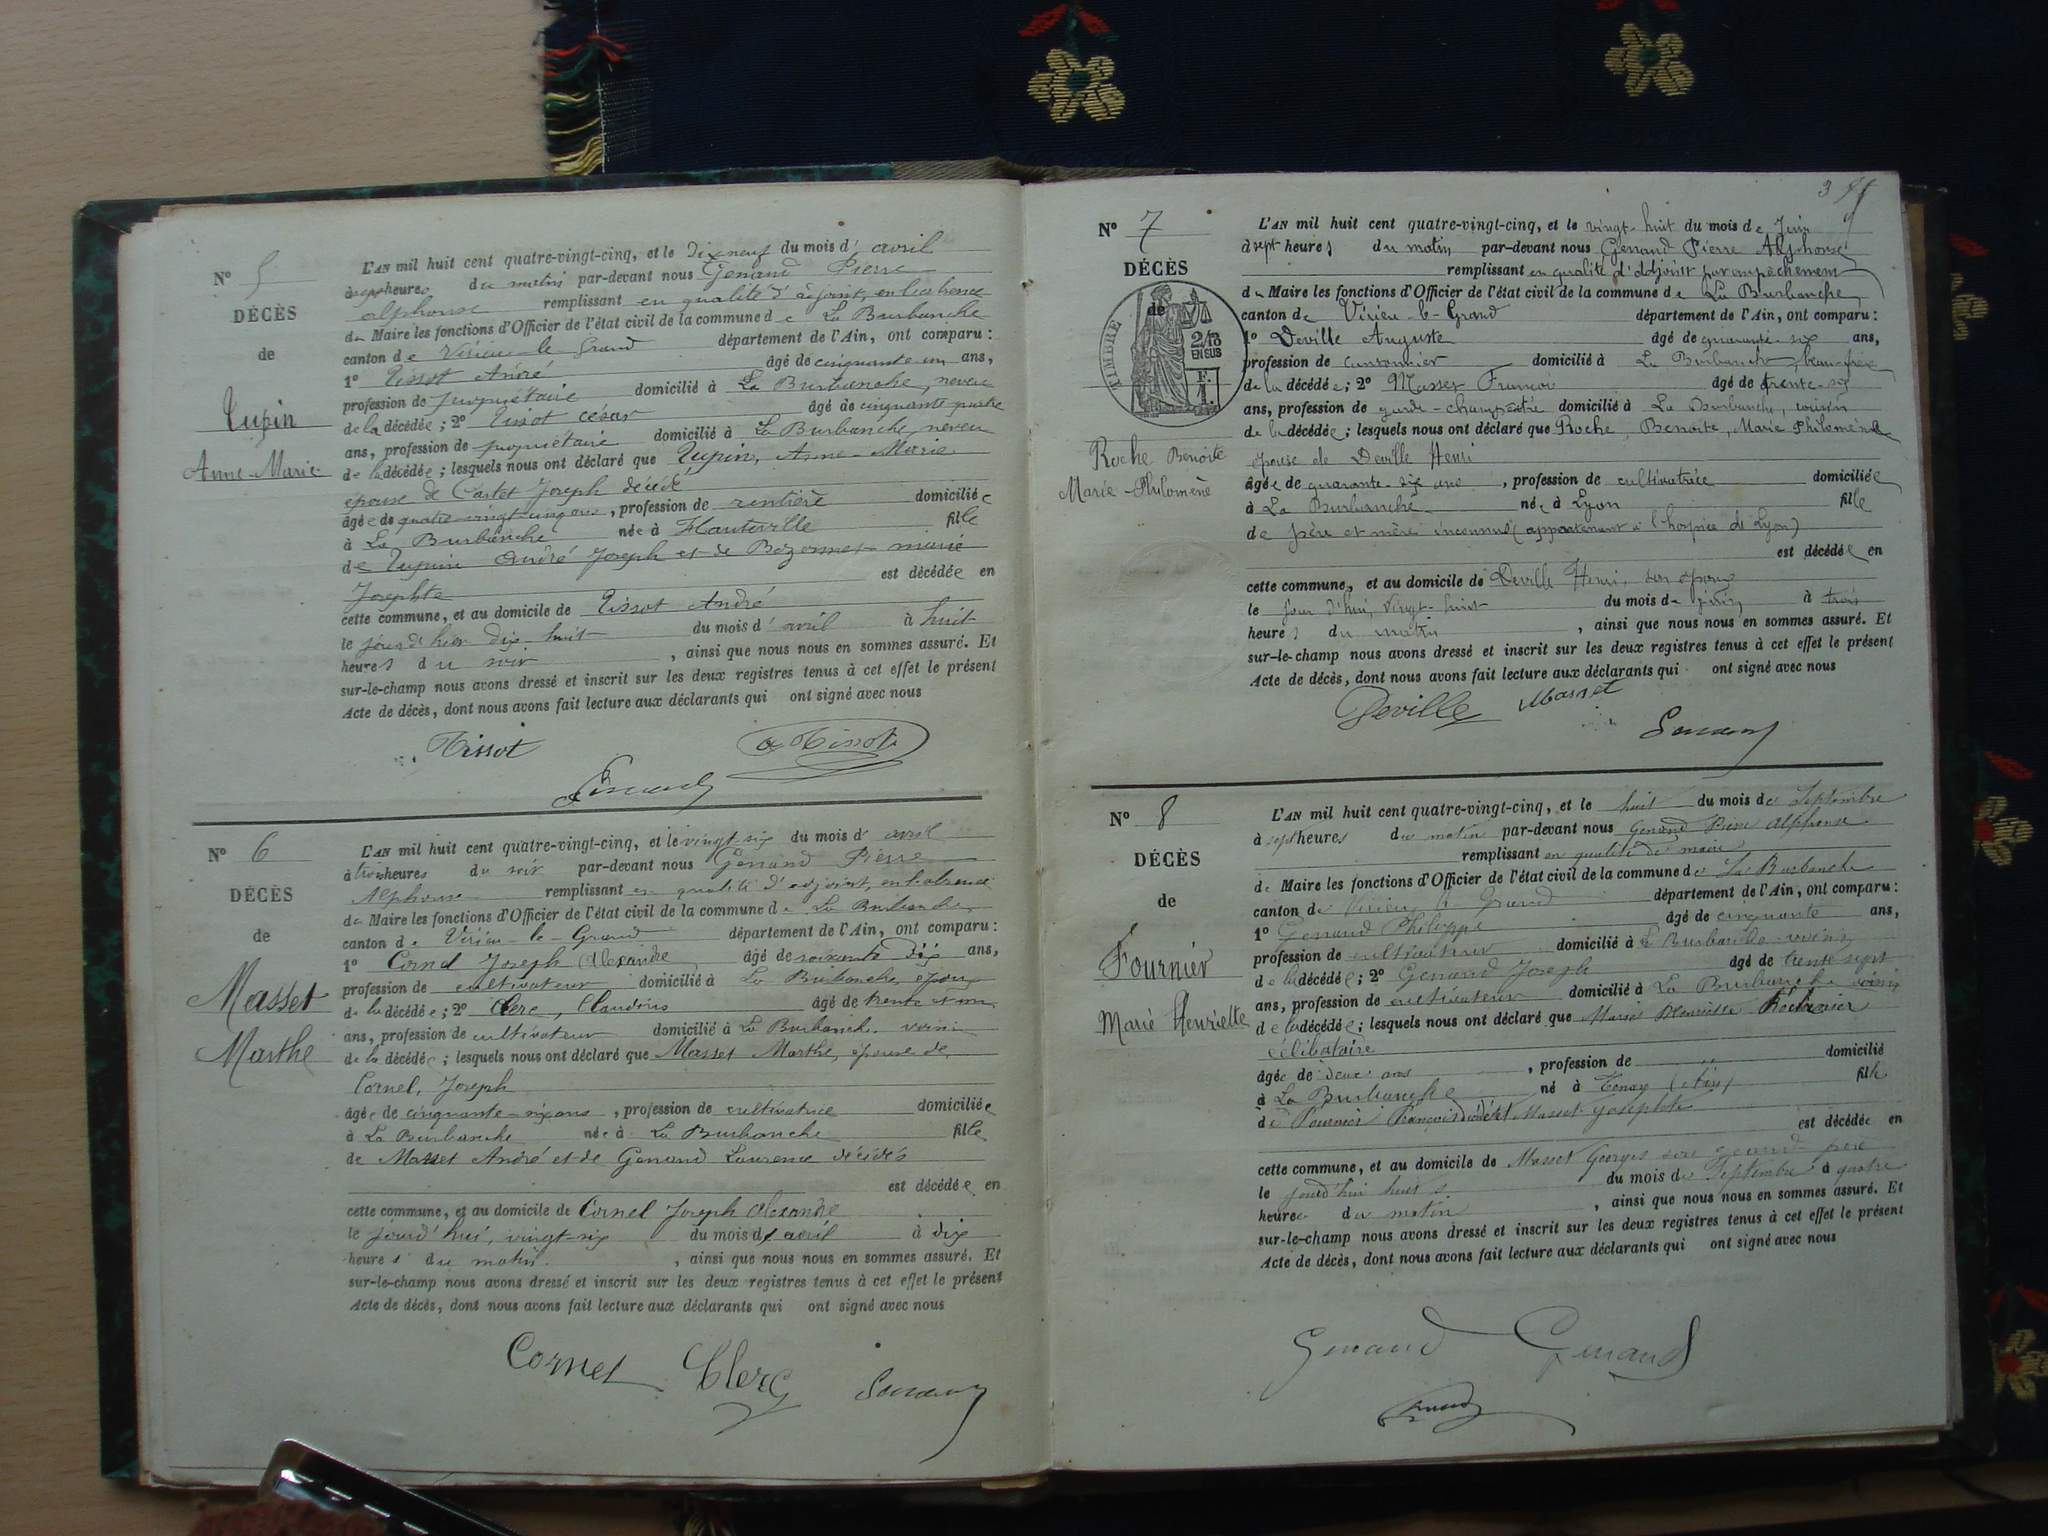 N° 5
DÉCÈS
de
Tupin
Anne-Marie
L'AN mil huit cent quatre-vingt-cinq, et le dix neuf du mois d' avril
à sept heures du matin par-devant nous Genand Pierre
alphonse remplissant en qualité d'adjoint, en l'absence
du Maire les fonctions d'Officier de l'état civil de la commune de La Burbanche
canton de Virieu-le-Grand département de l'Ain, ont comparu :
1° Tissot André âgé de cinquante un ans,
profession de propriétaire domicilié à La Burbanche, neveu
de la décédée ; 2° Tissot césar âgé de cinquante quatre
ans, profession de propriétaire domicilié à La Burbanche, neveu
de la décédée ; lesquels nous ont déclaré que Tupin, Anne-Marie
épouse de Castet Joseph décédé
âgée de quatre-vingt-cinq ans, profession de rentière domiciliée
à La Burbanche née à Hauteville fille
de Tupin André Joseph et de Bozonnet marie
Josephte est décédée en
cette commune, et au domicile de Tissot André
le jour d'hier dix-huit du mois d' avril à huit
heures du soir, ainsi que nous nous en sommes assuré. Et
sur-le-champ nous avons dressé et inscrit sur les deux registres tenus à cet effet le présent
Acte de décès, dont nous avons fait lecture aux déclarants qui ont signé avec nous
Tissot
a Tissot
Genand
N° 6
DÉCÈS
de
Masset
Marthe
L'AN mil huit cent quatre-vingt-cinq, et le vingt-six du mois d' avril
à trois heures du soir par-devant nous Genand Pierre
Alphonse remplissant en qualité d'adjoint, en l'absence
du Maire les fonctions d'Officier de l'état civil de la commune de La Burbanche
canton de Virieu-le-Grand département de l'Ain, ont comparu :
1° Cornet Joseph Alexandre âgé de soixante Dix ans,
profession de cultivateur domicilié à La Burbanche, époux
de la décédée ; 2° Clerc, Claudius âgé de trente et un
ans, profession de cultivateur domicilié à La Burbanche, voisin
de la décédée ; lesquels nous ont déclaré que Masset Marthe, épouse de
Cornet, Joseph
âgée de cinquante-six ans, profession de cultivatrice domiciliée
à La Burbanche née à La Burbanche fille
de Masset André et de Genand Laurence décédés
est décédée en
cette commune, et au domicile de Cornet Joseph Alexandre
le jourd'hui, vingt-six du mois d' avril à dix
heures du matin, ainsi que nous nous en sommes assuré. Et
sur-le-champ nous avons dressé et inscrit sur les deux registres tenus à cet effet le présent
Acte de décès, dont nous avons fait lecture aux déclarants qui ont signé avec nous
Cornet Clerc Genand
3
N° 7
DÉCÈS
de
TIMBRE
2/10
EN SUS
Roche Benoite
Marie-Philomène
L'AN mil huit cent quatre-vingt-cinq, et le vingt-huit du mois de Juin
à sept heures du matin par-devant nous Genand Pierre Alphonse
remplissant en qualité d'adjoint par empêchement
du Maire les fonctions d'Officier de l'état civil de la commune de La Burbanche,
canton de Virieu-le-Grand département de l'Ain, ont comparu :
1° Deville Auguste âgé de quarante-six ans,
profession de cantonnier domicilié à La Burbanche, beau-frère
de la décédée ; 2° Masset François âgé de trente-six
ans, profession de garde-champêtre domicilié à La Burbanche, voisin
de la décédée ; lesquels nous ont déclaré que Roche, Benoite, Marie Philomène
épouse de Deville Henri
âgée de quarante-six ans, profession de cultivatrice domiciliée
à La Burbanche née à Lyon fille
de père et mère inconnus (appartenant à l'hospice de Lyon)
est décédée en
cette commune, et au domicile de Deville Henri, son époux
le jour d'hui, vingt-huit du mois de juin à trois
heures du matin, ainsi que nous nous en sommes assuré. Et
sur-le-champ nous avons dressé et inscrit sur les deux registres tenus à cet effet le présent
Acte de décès, dont nous avons fait lecture aux déclarants qui ont signé avec nous
Deville Masset
Genand
N° 8
DÉCÈS
de
Fournier
Marie Henriette
L'AN mil huit cent quatre-vingt-cinq, et le huit du mois de Septembre
à sept heures du matin par-devant nous Genand Pierre Alphonse
remplissant en qualité de maire
de Maire les fonctions d'Officier de l'état civil de la commune de La Burbanche
canton de Virieu-le-Grand département de l'Ain, ont comparu :
1° Genand Philippe âgé de cinquante ans,
profession de cultivateur domicilié à La Burbanche voisin
de la décédée ; 2° Genand Joseph âgé de trente sept
ans, profession de cultivateur domicilié à La Burbanche voisin
de la décédée ; lesquels nous ont déclaré que Marie Henriette
célibataire
âgée de deux ans, profession de " domicilié
à La Burbanche né à Tenay (Ain) fille
de Fournier François et Masset Josephte
est décédée en
cette commune, et au domicile de Masset Georges son grand-père
le jourd'hui huit du mois de Septembre à quatre
heures du matin, ainsi que nous nous en sommes assuré. Et
sur-le-champ nous avons dressé et inscrit sur les deux registres tenus à cet effet le présent
Acte de décès, dont nous avons fait lecture aux déclarants qui ont signé avec nous
Genand Genand
Genand